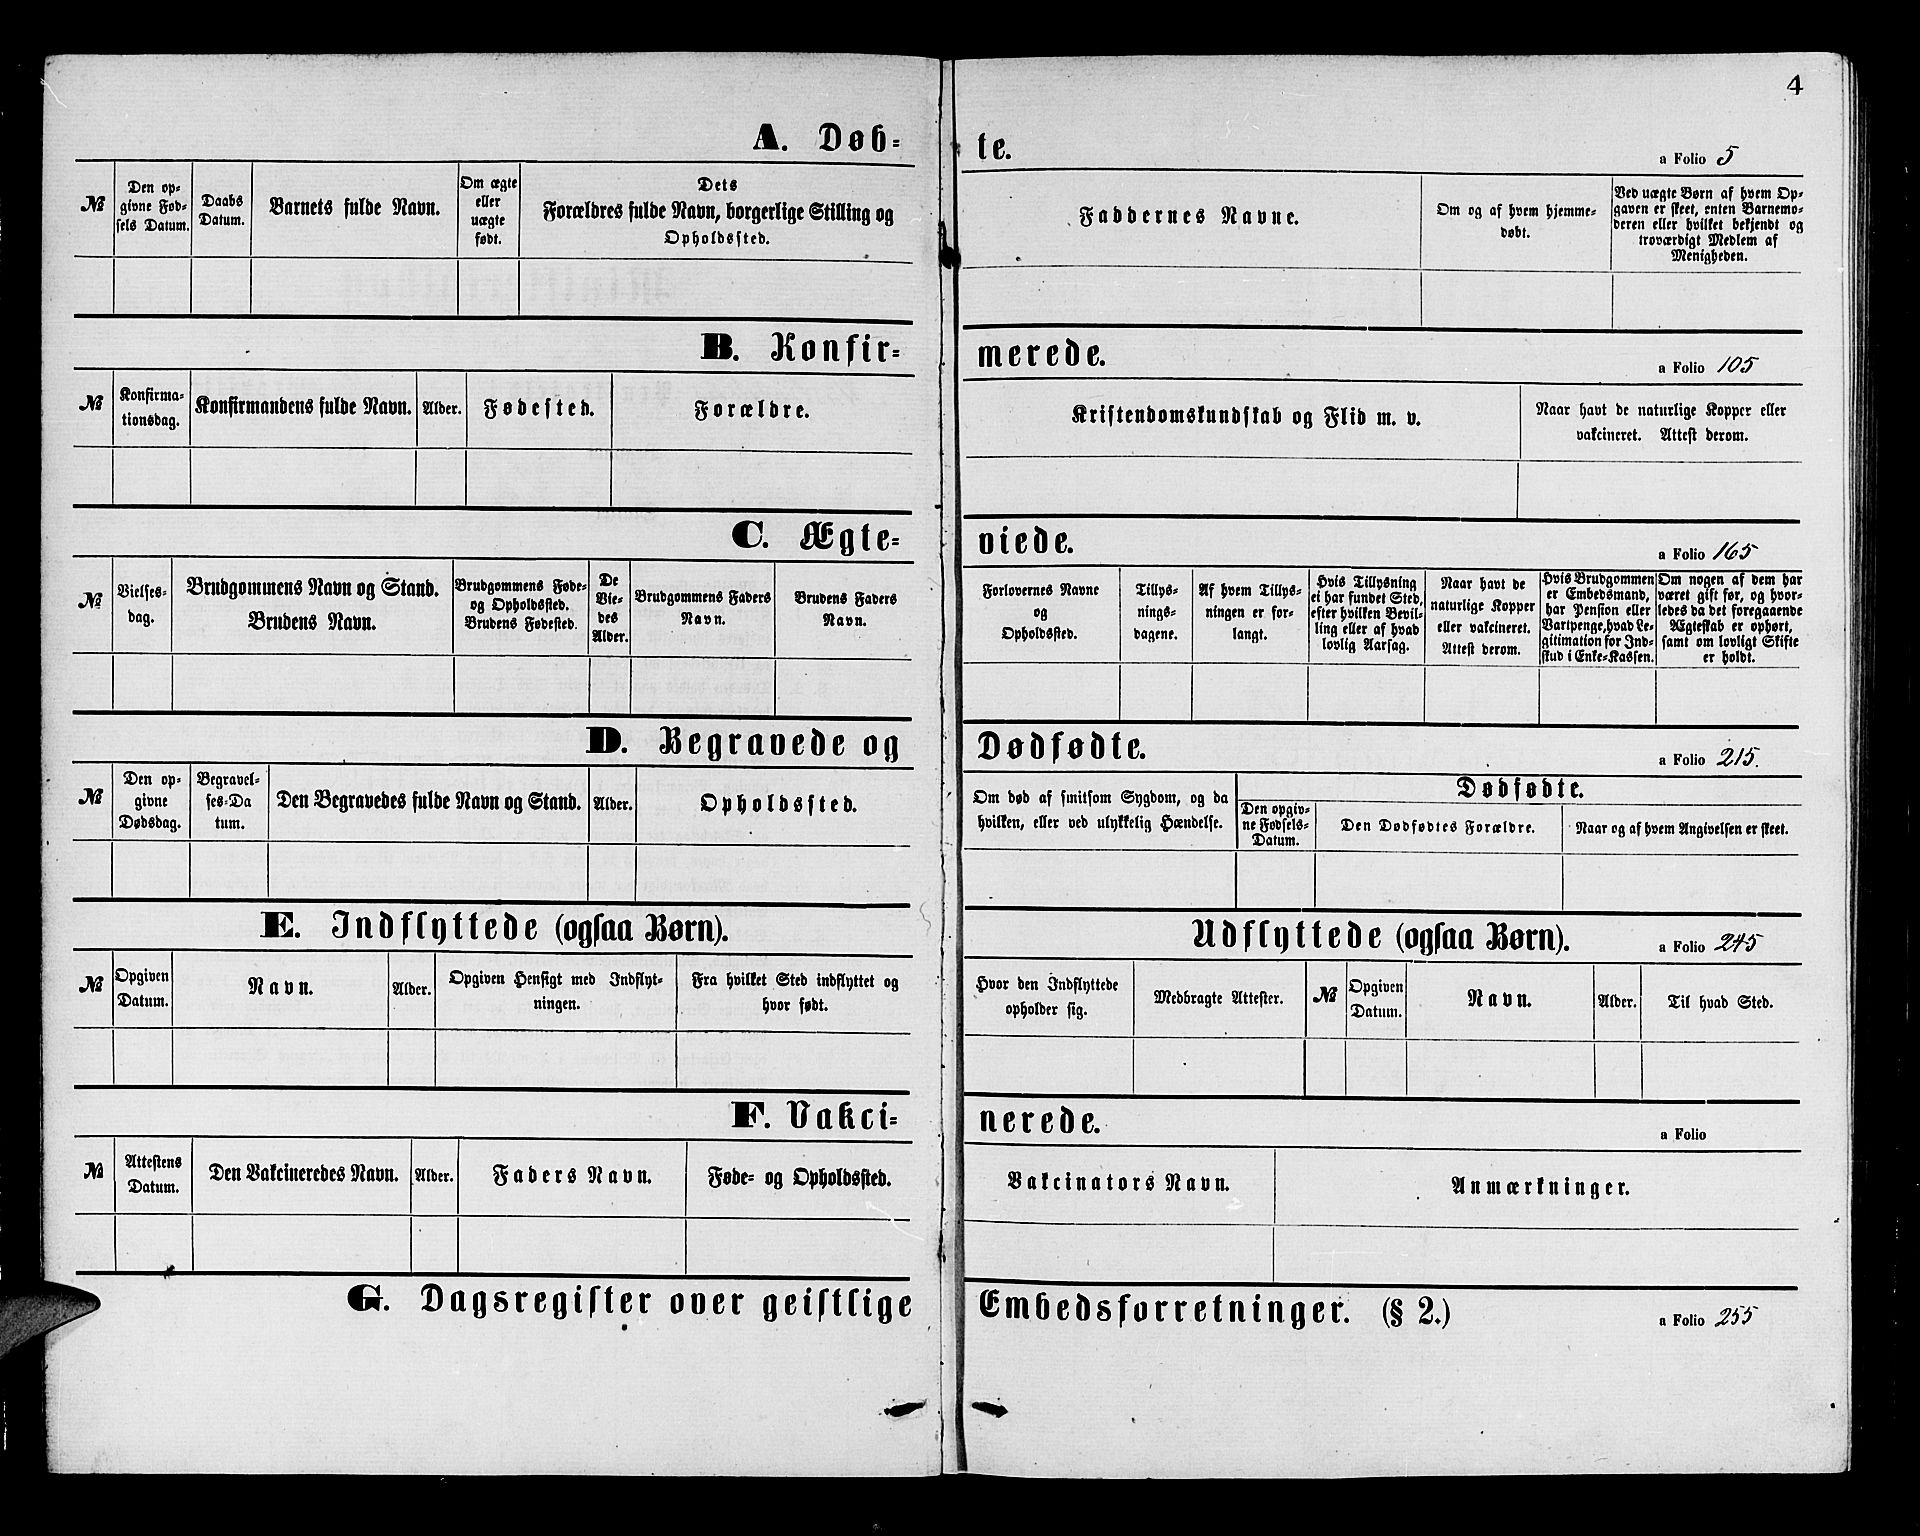 4
A. Døb-te. a Folio 5
№
Den op-
givne Fød-
sels Datum.
Daabs
Datum.
Barnets fulde Navn.
Om ægte
eller
uægte
født.
Dets
Forældres fulde Navn, borgerlige Stilling og
Opholdssted.
Faddernes Navne.
Om og af hvem hjemme-
døbt.
Ved uægte Børn af hvem Op-
gaven er skeet, enten Barnemo-
deren eller hvilket bekjendt og
troværdigt Medlem af
Menigheden.
B. Konfir-merede. a Folio 105
№
Konfirma-
tionsdag.
Konfirmandens fulde Navn.
Alder.
Fødested.
Forældre.
Kristendomskundskab og Flid m. v.
Naar havt de naturlige Kopper eller
vakcineret. Attest derom.
C. Ægte-viede. a Folio 165
№
Vielses-
dag.
Brudgommens Navn og Stand.
Brudens Navn.
Brudgommens Føde-
og Opholdssted.
Brudens Fødested.
De
Vie-
des
Alder.
Brudgommens Faders
Navn.
Brudens Faders
Navn.
Forlovernes Navne
og
Opholdssted.
Tillys-
nings-
dagene.
Af hvem Tillys-
ningen er for-
langt.
Hvis Tillysning
ei har fundet Sted,
efter hvilken Bevil-
ling eller af hvad
lovlig Aarsag.
Naar havt de
naturlige Kopper
eller vakcineret.
Attest derom.
Hvis Brudgommen
er Embedsmand,
har Pension eller
Vartpenge, hvad Le-
gitimation for Ind-
skud i Enke-Kassen.
Om nogen af dem har
været gift før, og hvor-
ledes da det foregaaende
Ægteskab er ophørt,
samt om lovligt Skifte
er holdt.
D. Begravede og Dødfødte. a Folio 215.
№
Den op-
givne
Dødsdag.
Begravel-
ses-Da
tum.
Den Begravedes fulde Navn og Stand.
Alder.
Opholdssted.
Om død af smitsom Sygdom, og da
hvilken, eller ved ulykkelig Hændelse.
Dødfødte.
Den opgiv-
ne Fødsels-
Datum.
Den Dødfødtes Forældre.
Naar og af hvem Angivelsen er skeet.
E. Indflyttede (ogsaa Børn). Udflyttede (ogsaa Børn). a Folio 245
№
Opgiven
Datum.
Navn.
Alder.
Opgiven Hensigt med Indflyt-
ningen.
Fra hvilket Sted indflyttet og
hvor født.
Hvor den Indflyttede
opholder sig.
Medbragte Attester.
№
Opgiven
Datum.
Navn.
Alder.
Til hvad Sted.
F. Vakci-nerede. a Folio
№
Attestens
Datum.
Den Vakcineredes Navn.
Alder.
Faders Navn.
Føde- og Opholdssted.
Vakcinators Navn.
Anmærkninger.
G. Dagsregister over geistlige Embedsforretninger. (§ 2.) a Folio 255